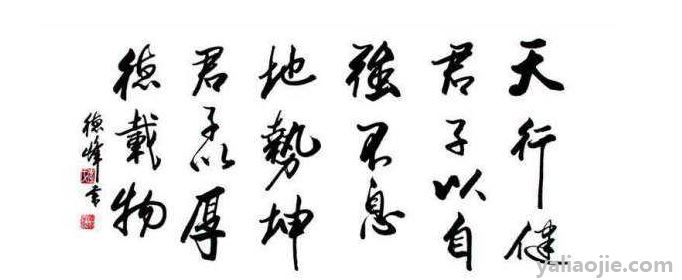 天行健
君子以自
強不息
地勢坤
君子以厚
德載物
德峰書
yaliaojie.com